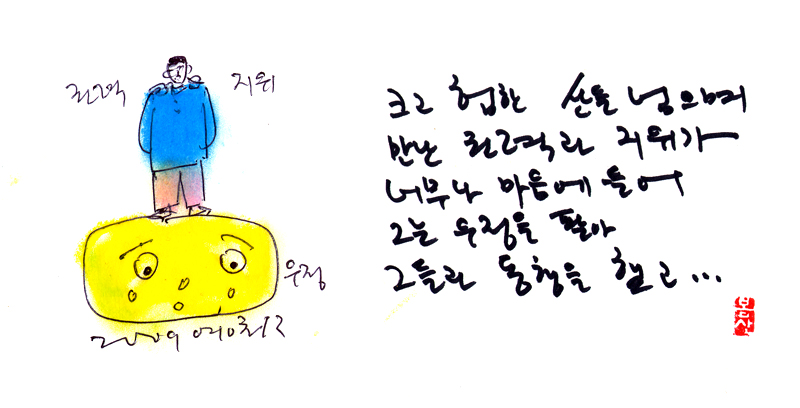 권력 지위
우정
2009
크고 험한 산들 넘으며
만난 권력과 지위가
너무나 마음에 들어
그는 우정을 팔아
그들과 동침을 했고...